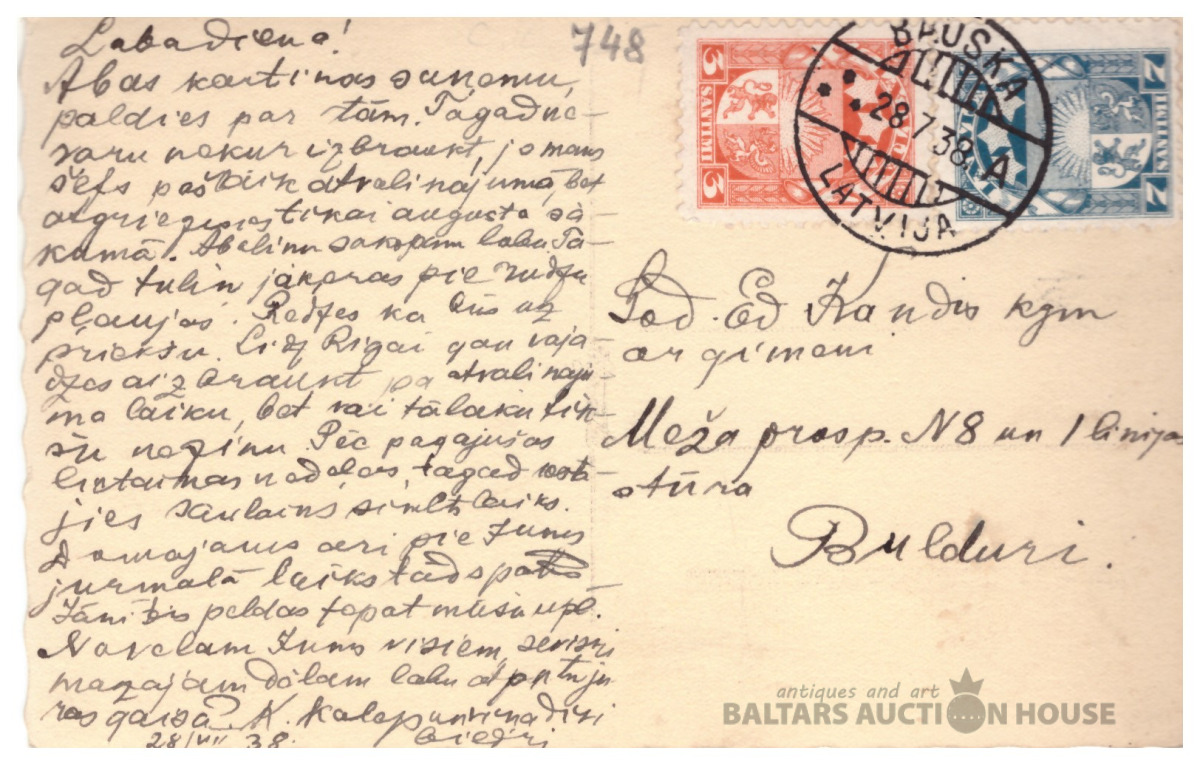 Labadiena!
Abas kartinas saņemu,
paldies par tām. Tagad ne-
varu nekur izbraukt, jo mans
šefs paštaik atvaļinajumā, bet
atgriezīsies tikai augusta sā-
kumā. Abelinu sakopām labu Ta-
gad tulin jākeras pie rudzu
pļaujas. Redzēs ka būs uz
priekšu. Līdz Rigai gan vaja-
dzes aizbraukt pa atvalinaju-
ma laiku, bet vai tālaku tik-
šu nezinu. Pēc pagajušas
lietainas nedeļas, tagad iesta-
jies saulains silts laiks.
Domajams ari pie Jums
jurmalā laiks tāds pats
Jānitis peldas tepat mūsu upē.
Novelam Jums visiem, sevišķi
mazajam dēlam labu atpūtu ju-
ras gaisā. K. Kalep un viena disi
biedri
28/VII 38.
748
3 SANTIMI 3
7 SANTIMU 7
BAUSKA
28 7 38 A
LATVIJA
God. Ed Kandis kgm
ar gimeni
Meža prosp. N8 un 1 linijas
stūra
Bulduri.
antiques and art
BALTARS AUCTION HOUSE